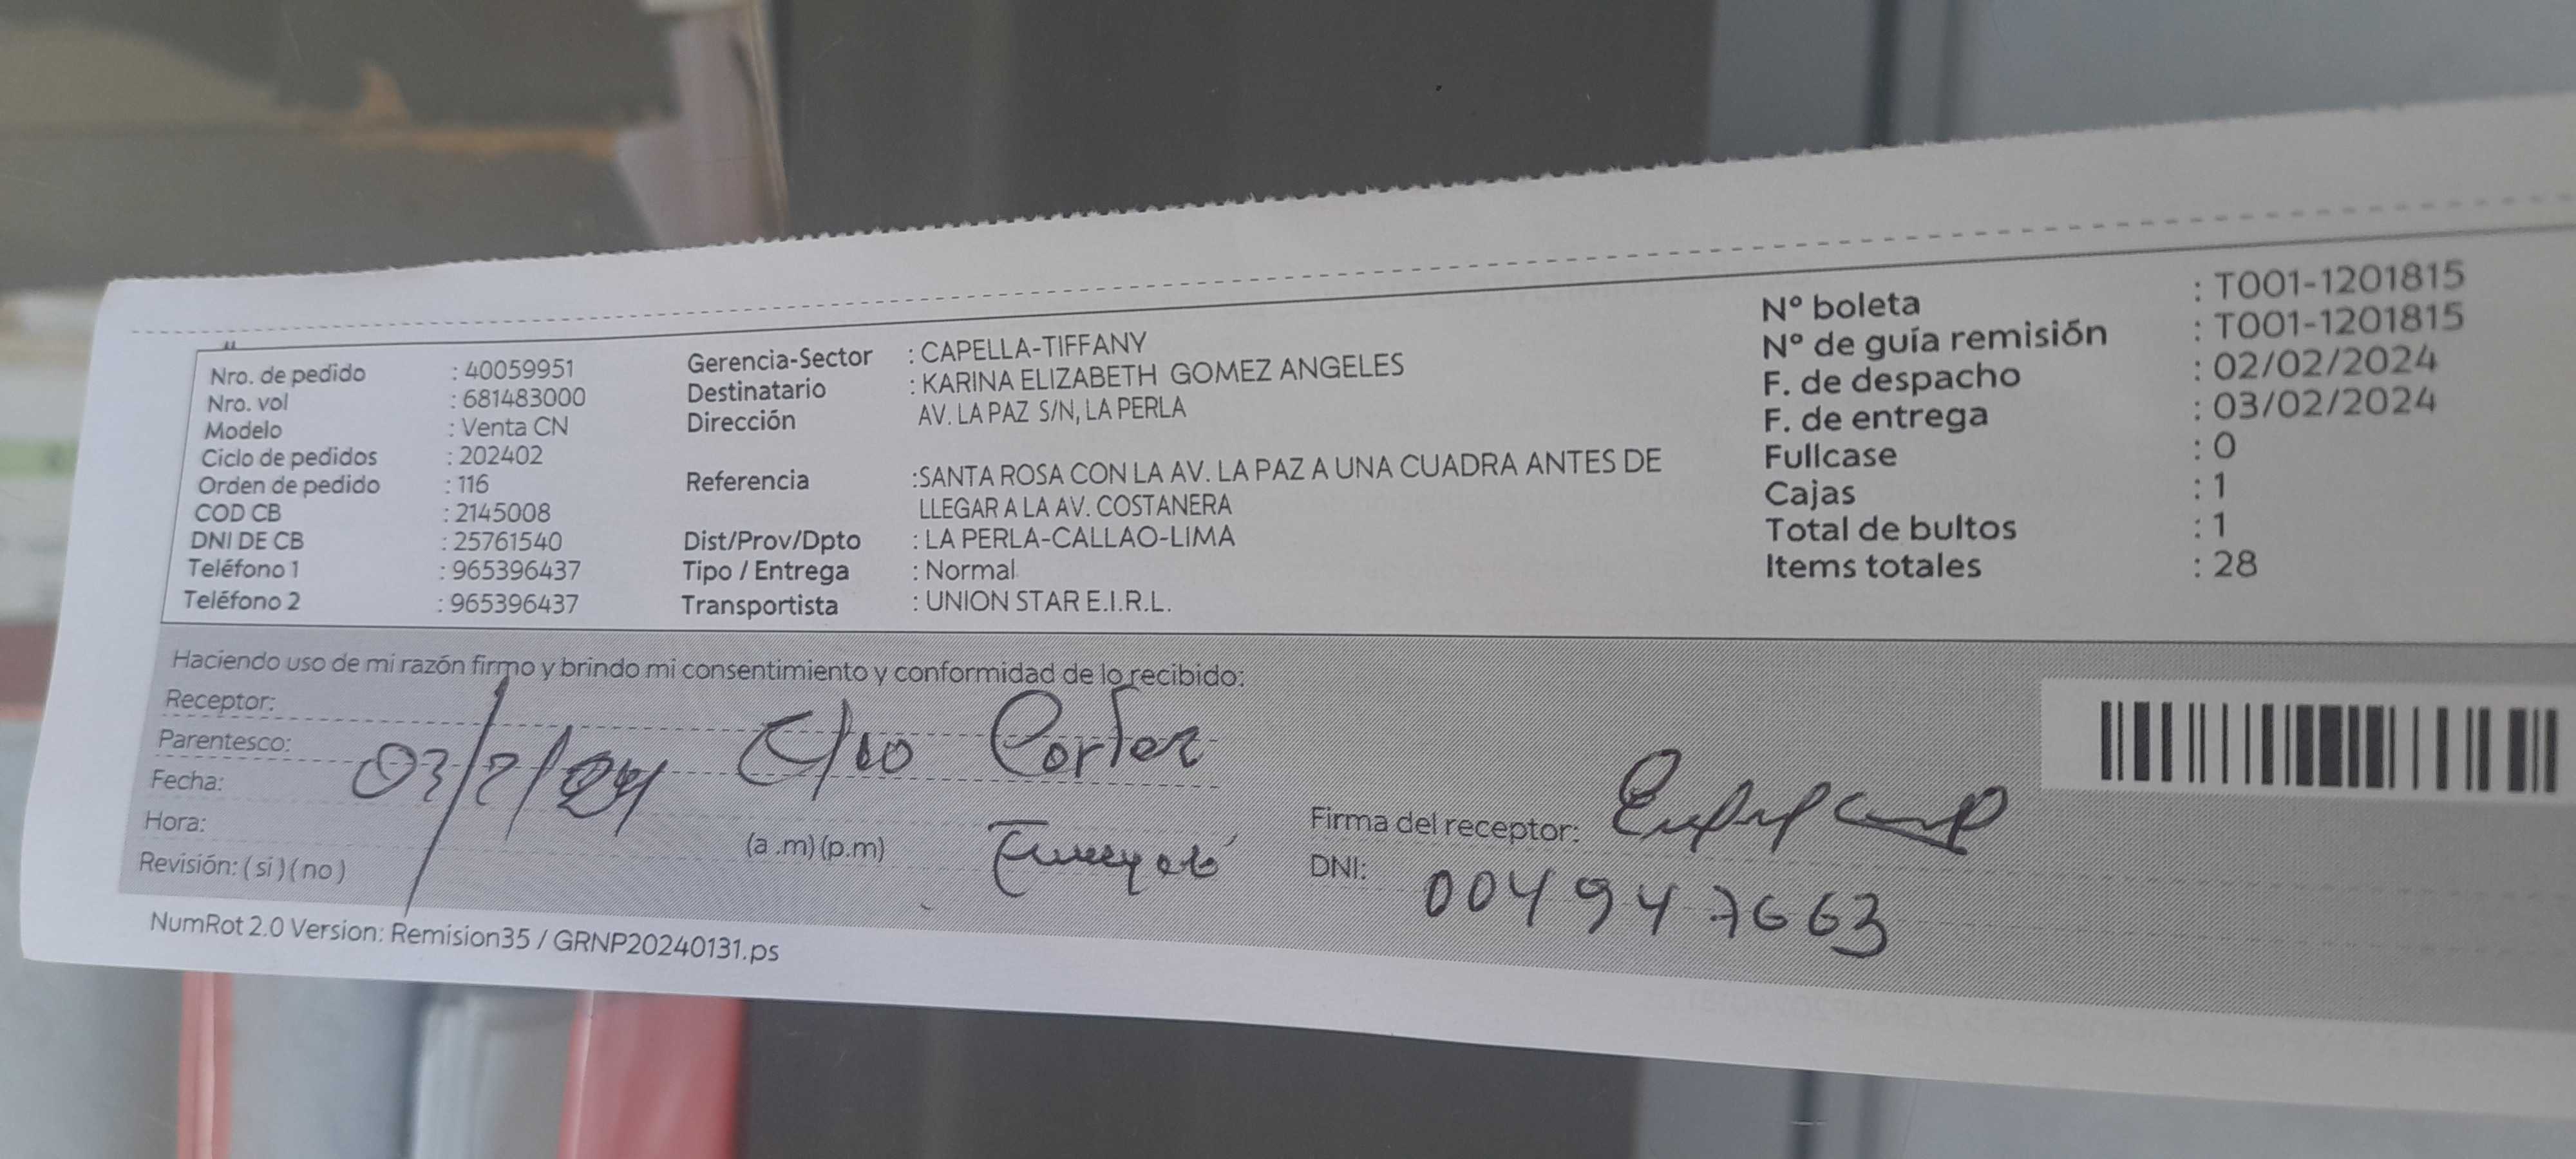 Nro. de pedido : 40059951
Nro. vol : 681483000
Modelo : Venta CN
Ciclo de pedidos : 202402
Orden de pedido : 116
COD CB : 2145008
DNI DE CB : 25761540
Teléfono 1 : 965396437
Teléfono 2 : 965396437
Gerencia-Sector : CAPELLA-TIFFANY
Destinatario : KARINA ELIZABETH GOMEZ ANGELES
Dirección AV. LA PAZ S/N, LA PERLA
Referencia :SANTA ROSA CON LA AV. LA PAZ A UNA CUADRA ANTES DE
LLEGAR A LA AV. COSTANERA
Dist/Prov/Dpto : LA PERLA-CALLAO-LIMA
Tipo / Entrega : Normal
Transportista : UNION STAR E.I.R.L.
Nº boleta : T001-1201815
Nº de guía remisión : T001-1201815
F. de despacho : 02/02/2024
F. de entrega : 03/02/2024
Fullcase : 0
Cajas : 1
Total de bultos : 1
Items totales : 28
Haciendo uso de mi razón firmo y brindo mi consentimiento y conformidad de lo recibido:
Receptor:
Parentesco: Cortez
Fecha: 03/2/24
Hora: (a .m) (p.m)
Revisión: ( si ) ( no )
Firma del receptor:
DNI: 004947663
NumRot 2.0 Version: Remision35 / GRNP20240131.ps